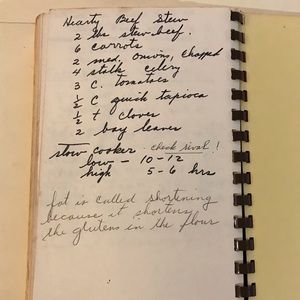 Hearty Beef Stew
2 lbs stew beef.
6 carrots
2 med. onions, chopped
4 stalk celery
3 C. tomatoes
1/2 C quick tapioca
1/2 t cloves
2 bay leaves
slow cooker - check !
low - 10-12
high 5-6 hrs
fat is called shortening
because it shortens
the glutens in the flour